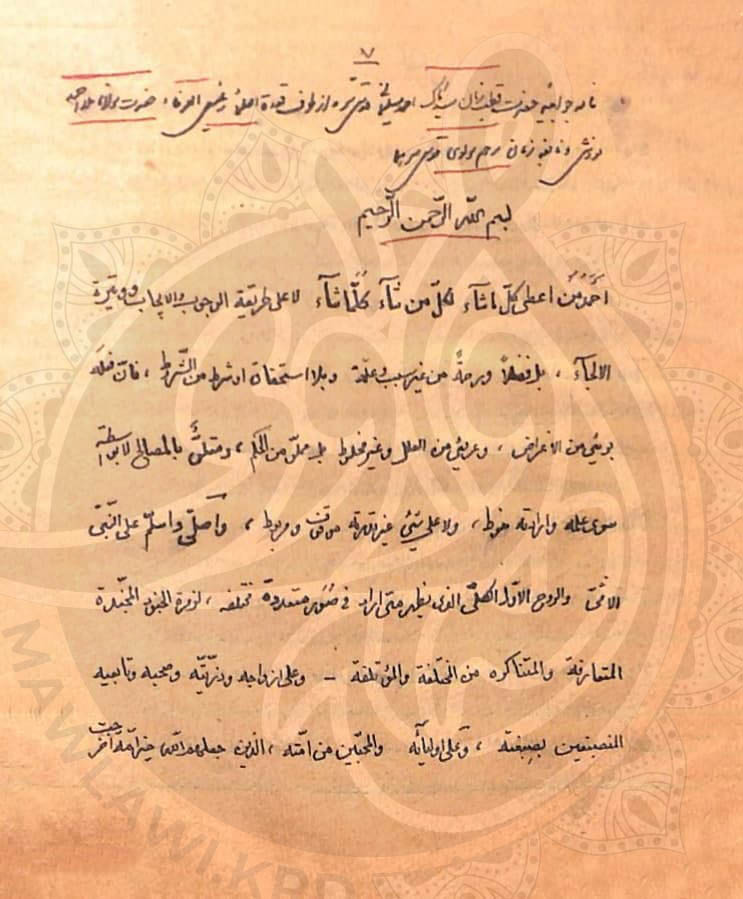 ۷
نامه جوابیه حضرت قطب زمان سید کاک احمد سلیمانی قدس سره از طرف قدوة حضرت مولانا ملا احمد
نودشی و نابغه زمان مرحوم مولوی قدس سرهما
بسم الله الرّحمن الرّحیم
احمد من اعطی کلّ ما شآء لکلّ من شآء کلّما شآء لا علی طریقة الوجوب والایجاب و وتیرة
الالجآء ، بل فضلاً ورحمةً من غیر سبب وعلّة وبلا استحقاق او شرط من الشّروط ، فانّ فعله
بریٔ من الأغراض ، وعریٔ من العلل وغیر مخلوط بل مملوّ من الحکم ، ومتعلّق بالمصالح لا بواسطة
سوی علمه وارادته منوط ، ولا علی شیئ غیر قدرته موقوف ومربوط ، واصلّی واسلّم علی النّبیّ
الامّیّ والروح الاوّل الکلّیّ الذی یظهر متی اراد فی صُوَر متعددة مختلفه ، لزمرة الجنود المجنّدة
المتعارفة والمتناکره من المختلفة والمؤتلفة – وعلی ازواجه وذرّیّته وصحبه وتابعیه
المنصبغین بصبغته ، وعلی اولیآئه والمحبّین من امّته ، الذین جعلهم الله خیر امّة اخرجت